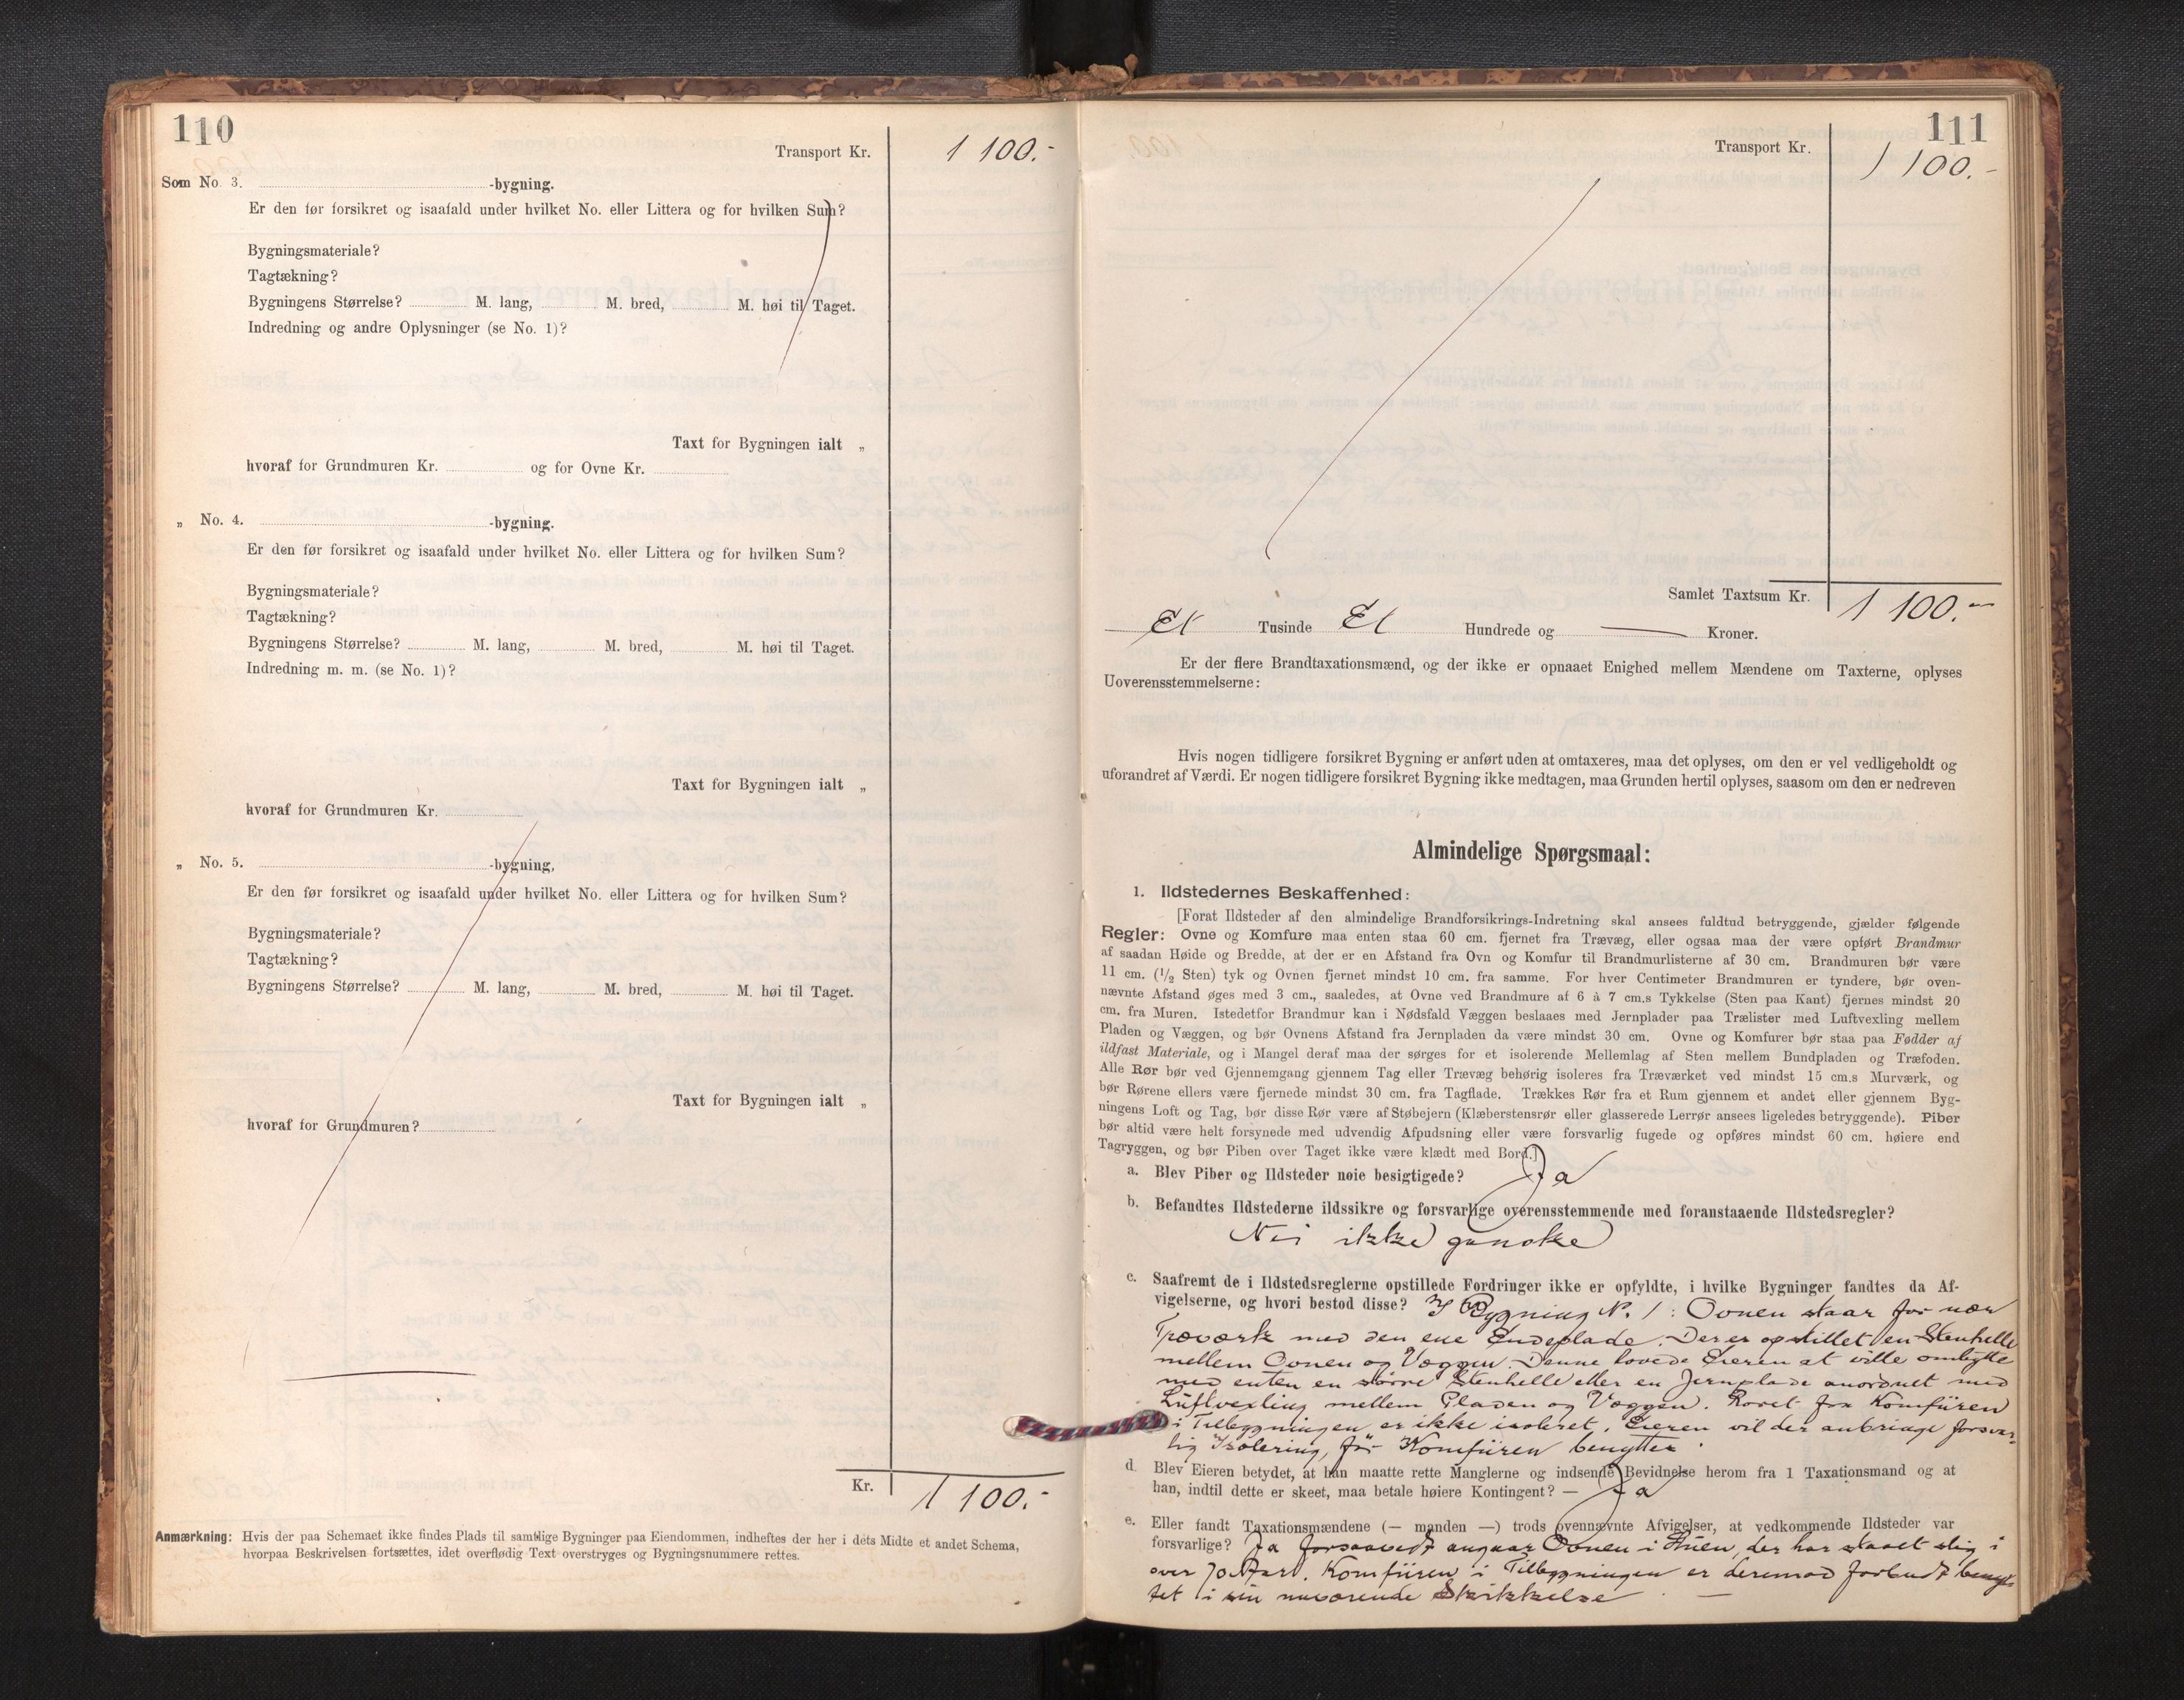 110
Transport Kr. 1 100.-
Som No. 3. -bygning.
Er den før forsikret og isaafald under hvilket No. eller Littera og for hvilken Sum?
Bygningsmateriale?
Tagtækning?
Bygningens Størrelse? M. lang, M. bred, M. høi til Taget.
Indredning og andre Oplysninger (se No. 1)?
Taxt for Bygningen ialt „
hvoraf for Grundmuren Kr. og for Ovne Kr.
„ No. 4. -bygning.
Er den før forsikret og isaafald under hvilket No. eller Littera og for hvilken Sum?
Bygningsmateriale?
Tagtækning?
Bygningens Størrelse? M. lang, M. bred, M. høi til Taget.
Indredning m. m. (se No. 1)?
Taxt for Bygningen ialt „
hvoraf for Grundmuren Kr.
„ No. 5. -bygning,
Er den før forsikret og isaafald under hvilket No. eller Littera og for hvilken Sum?
Bygningsmateriale?
Tagtækning?
Bygningens Størrelse? M. lang, M. bred, M. høi til Taget.
Taxt for Bygningen ialt „
hvoraf for Grundmuren?
Kr. 1 100.-
Anmærkning: Hvis der paa Schemaet ikke findes Plads til samtlige Bygninger paa Eiendommen, indheftes der her i dets Midte et andet Schema,
hvorpaa Beskrivelsen fortsættes, idet overflødig Text overstryges og Bygningsnummere rettes.
111
Transport Kr. 1 100.-
Samlet Taxtsum Kr. 1 100.-
Et Tusinde Et Hundrede og — Kroner.
Er der flere Brandtaxationsmænd, og der ikke er opnaaet Enighed mellem Mændene om Taxterne, oplyses
Uoverensstemmelserne:
Hvis nogen tidligere forsikret Bygning er anført uden at omtaxeres, maa det oplyses, om den er vel vedligeholdt og
uforandret af Værdi. Er nogen tidligere forsikret Bygning ikke medtagen, maa Grunden hertil oplyses, saasom om den er nedreven
Almindelige Spørgsmaal:
1. Ildstedernes Beskaffenhed:
[Forat Ildsteder af den almindelige Brandforsikrings-Indretning skal ansees fuldtud betryggende, gjælder følgende
Regler: Ovne og Komfure maa enten staa 60 cm. fjernet fra Trævæg, eller ogsaa maa der være opført Brandmur
af saadan Høide og Bredde, at der er en Afstand fra Ovn og Komfur til Brandmurlisterne af 30 cm. Brandmuren bør være
11 cm. (1/2 Sten) tyk og Ovnen fjernet mindst 10 cm. fra samme. For hver Centimeter Brandmuren er tyndere, bør oven-
nævnte Afstand øges med 3 cm., saaledes, at Ovne ved Brandmure af 6 à 7 cm.s Tykkelse (Sten paa Kant) fjernes mindst 20
cm. fra Muren. Istedetfor Brandmur kan i Nødsfald Væggen beslaaes med Jernplader paa Trælister med Luftvexling mellem
Pladen og Væggen, og bør Ovnens Afstand fra Jernpladen da være mindst 30 cm. Ovne og Komfurer bør staa paa Fødder af
ildfast Materiale, og i Mangel deraf maa der sørges for et isolerende Mellemlag af Sten mellem Bundpladen og Træfoden.
Alle Rør bør ved Gjennemgang gjennem Tag eller Trævæg behørig isoleres fra Træværket ved mindst 15 cm.s Murværk, og
bør Rørene ellers være fjernede mindst 30 cm. fra Tagflade. Trækkes Rør fra et Rum gjennem et andet eller gjennem Byg-
ningens Loft og Tag, bør disse Rør være af Støbejern (Klæberstensrør eller glasserede Lerrør ansees ligeledes betryggende). Piber
bør altid være helt forsynede med udvendig Afpudsning eller være forsvarlig fugede og opføres mindst 60 cm. høiere end
Tagryggen, og bør Piben over Taget ikke være klædt med Bord.]
a. Blev Piber og Ildsteder nøie besigtigede? Ja
b. Befandtes Ildstederne ildssikre og forsvarlige overensstemmende med foranstaaende Ildstedsregler?
Nei ikke ganske
c. Saafremt de i Ildstedsreglerne opstillede Fordringer ikke er opfyldte, i hvilke Bygninger fandtes da Af-
vigelserne, og hvori bestod disse? I Bygning N. 1: Ovnen staar for nær
Træværk med den ene Endeplade. Der er opstillet en Stenhelle
mellem Ovnen og Væggen. Denne lovede Eieren at ville ombytte
med enten en større Stenhelle eller en Jernplade anordnet med
Luftvexling mellem Pladen og Væggen. Røret fra Komfüren
i Tilbygningen er ikke isoleret. Eieren vil der anbringe forsvar-
lig Isolering, før Komfüren benyttes.
d. Blev Eieren betydet, at han maatte rette Manglerne og indsende Bevidnelse herom fra 1 Taxationsmand og at
han, indtil dette er skeet, maa betale høiere Kontingent? — Ja
e. Eller fandt Taxationsmændene (— manden —) trods ovennævnte Afvigelser, at vedkommende Ildsteder var
forsvarlige? Ja forsaavidt angaar Ovnen i Stuen, der har staaet slig i
over 70 Aar. Komfüren i Tilbygningen er derimod forbudt benyt-
tet i sin nuværende Skikkelse —